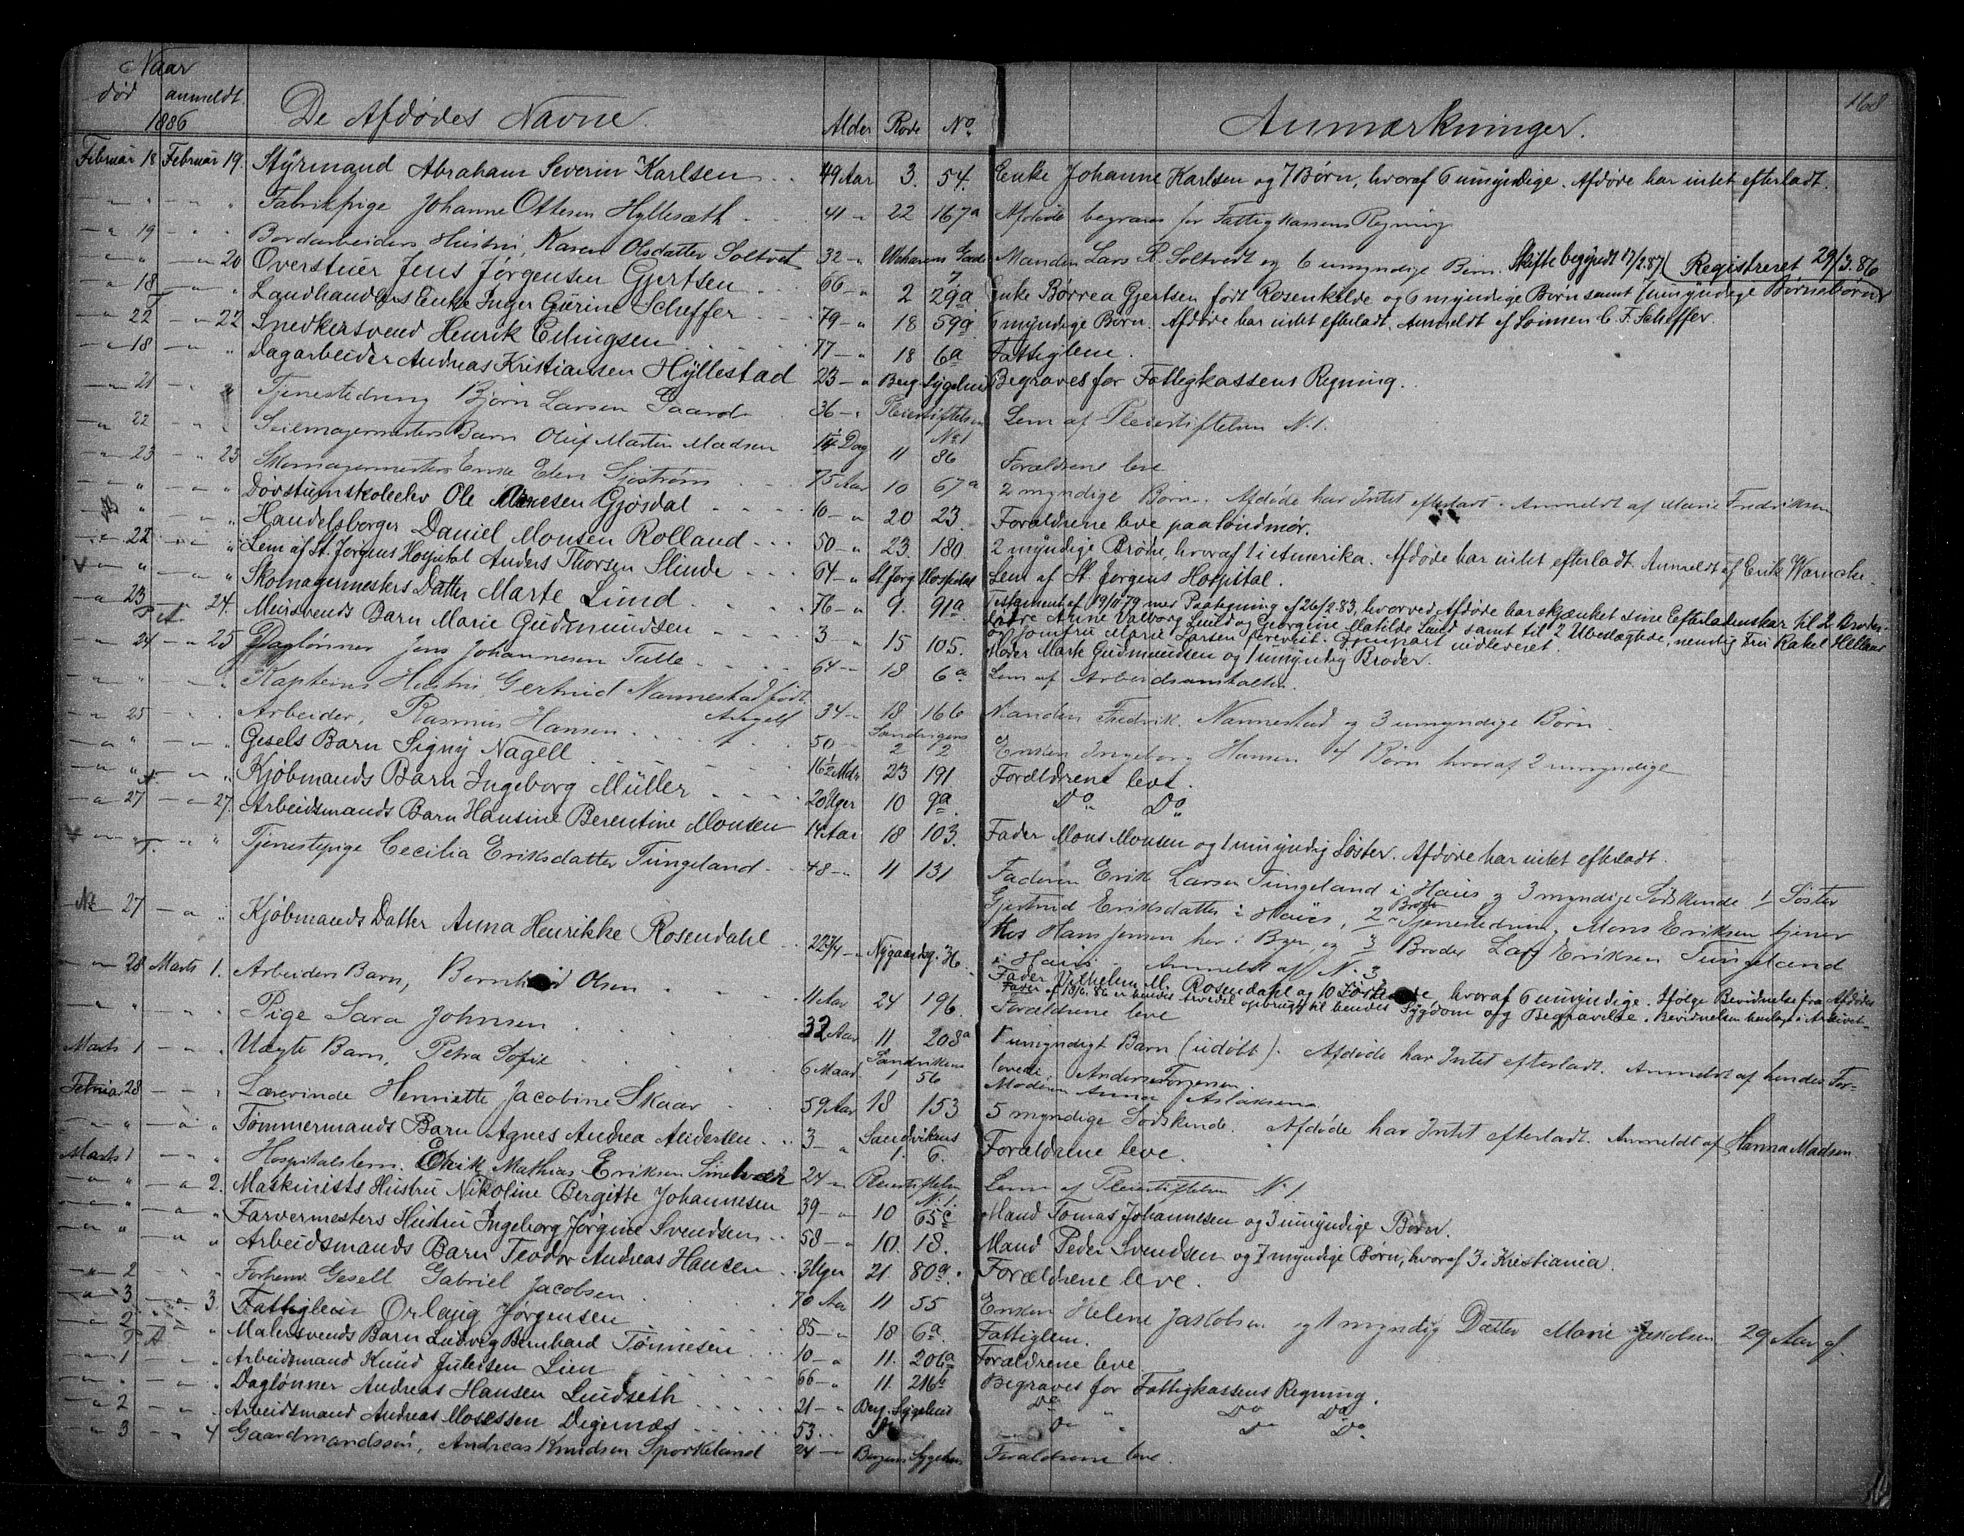 Naar
død anmeldt
1886
De Afdødes Navne. Alder Rode No. Anmærkninger. 168
Februar 18 Februar 19. Styrmand Abraham Severin Karlsen 49 Aar 3. 54. Enke Johanne Karlsen og 7 Børn, hvoraf 6 umyndige. Afdøde har intet efterladt.
" " " " Fabrikpige Johanne Ottesen Hyllesæth 41 " 22 167a Afdøde begraves for Fattigkassens Regning
" 19 " " Bordarbeiders Hustru, Karen Olsdatter Soltvet 32 " Gade 7 Manden Lars R. Soltvedt og 6 umyndige Børn. Skifte begyndt 17/2.87 (Registreret 29/3.86
" " " 20 Overstuer Jens Jørgensen Gjertsen 66 " 2 29a Enke Borrea Gjertsen født Rosenkilde og 6 myndige Børn samt 1 umyndige Børnebørn
" 18 " " Landhandlers Enke Inger Gurine Scheffer 79 " 18 59a 6 myndige Børn. Afdøde har intet efterladt. Anmeldt af Sønnen C. F. Scheffer.
" 22 " 22 Snedkersvend Henrik Ellingsen 77 " 18 6a Fattiglem.
" 18 " " Dagarbeider Andreas Kristiansen Hyllestad 23 " Berg. Sygehus Begraves for Fattigkassens Regning.
" 21 " " Tjenestedreng Bjørn Larsen Gaard 36 " Pleiestiftelsen No 1 Lem af Pleiestiftelsen N. 1.
" 22 " " Seilmagermesters Barn Oluf Martin Madsen 14 Dag 11 86 Forældrene leve
" 23 " 23 Skomagermesters Enke Elen Sjøstrøm 75 Aar 10 67a 2 myndige Børn. Afdøde har Intet efterladt. Anmeldt af Marie Fredriksen
" " " " Døvstumskoleelev Ole Gjøsdal 16 " 20 23. Forældrene leve paa Søndmør.
" " " Handelsborger Daniel Monsen Rolland 50 " 23. 180. 2 myndige Brødre, hvoraf 1 i Amerika. Afdøde har intet efterladt. Anmeldt af Erik Warncke.
" 22 " " Lem af St. Jørgens Hospital Anders Thorsen Slinde 64 " St Jørg Hospital Lem af St. Jørgens Hospital.
" " " " Skomagermesters Datter Marte Lund 76 " 9. 91a Testament af 19/11 79 med Paategning af 26/2.83, hvorved Afdøde har skjænket sine Efterladenskaber til 2 Broder-
døtre Anne Valborg Lund og Georgine Matilde Lund samt til 2 Ubeslægtede, nemlig Fru Rakel Helland
og Jomfru Marie Larsen Grevest. Gjenpart indleveret.
" 23 " 24. Mursvends Barn Marie Gudmundsen 3 " 15 105. Moder Marte Gudmundsen og 1 umyndig Broder.
" 24 " 25 Daglønner Jens Johannesen Tulle 64 " 18 6a Lem af Arbeidsanstalten.
" " " " Kapteins Hustru, Gertrud Nannestad født Angell 34 " 18 166 Manden Fredrik Nannestad og 3 umyndige Børn
" 25 " " Arbeider, Rasmus Hansen 50 " Sandvigens 2 2 Enken Ingeborg Hansen 4 Børn hvoraf 2 umyndige
" " " " Gesels Barn Signy Nagell 16½ Mdr 23 191 Forældrene leve.
" " " " Kjøbmands Barn Ingeborg Müller 20 Uger 10 9a Do Do
" 27 " 27. Arbeidsmands Barn Hansine Berentine Monsen 14 Aar 18 103. Fader Mons Monsen og 1 umyndig Søster. Afdøde har intet efterladt.
" " " " Tjenestepige Cecilia Eriksdatter Tungeland 48 " 11 131 Faderen Erik Larsen Tungeland i Haus og 3 myndige Sødskende 1/ Søster
Gjertrud Eriksdatter i Haus, 2/ Broder Tjenestedreng Mons Eriksen tjener
hos Hans Jensen her i Byen og 3/ Broder Lars Eriksen Tungeland
i Haus. Anmeldt af N. 3
" 27 " " Kjøbmands Datter Anna Henrikke Rosendahl 22 3/4 " Nygaardsg. 36 Fader Vilhelm M. Rosendahl og 10 Sødskende, hvoraf 6 umyndige. Ifølge Bevidnelse fra Afdødes
Fader af 13/6.86 er hendes Arvedel opbrugt til hendes Sygdom og Begravelse. Bevidnelsen henlagt i Arkivet.
" 28 Marts 1. Arbeiders Barn, Bernhard Olsen 11 Aar 24 196. Forældrene leve
" " " " Pige Sara Johnsen 32 Aar 11 208a 1 umyndigt Barn (udøbt). Afdøde har Intet efterladt. Anmeldt af hendes For-
lovede Anders Torjersen.
Marts 1 " " Uægte Barn, Petra Sofie 6 Maad. Sandvikens 1 56 Moderen Anna Aslaksen
Februar 28 " " Lærerinde Henriette Jacobine Skaar 59 Aar 18 153 5 myndige Sødskende. Afdøde har Intet efterladt. Anmeldt af Hanna Madsen.
" " " " Tømmermands Barn Agnes Andrea Andersen 3 " Sandvikens 1. 6. Forældrene leve.
Marts 1 " " Hospitalslem. Erik Mathias Eriksen 24 " Pleiestiftelsen N. 1. Lem af Pleiestiftelsen N. 1.
" " " 2. Maskinists Hustru Nikoline Bergitte Johannesen 39 " 10 65c Mand Tomas Johannesen og 3 umyndige Børn.
" " " " Farvermesters Hustru Ingeborg Jørgine Svendsen 58 " 10. 18. Mand Peder Svendsen og 7 myndige Børn, hvoraf 3 i Kristiania.
" " " Arbeidsmands Barn Teodor Andreas Hansen 3 Uger 21. 80a. Forældrene leve.
" 2 " " Forhenv. Gesell Gabriel Jacobsen 70 Aar 11 55 Enken Helene Jakobsen og 1 myndig Datter Marie Jakobsen 29 Aar gl.
" 3 " 3. Fattiglem Orlaug Jørgensen 85 " 18 6a. Fattiglem.
" 2 " " Malersvends Barn Ludvig Bernhard Tønnesen 10 " 11. 206a Forældrene leve.
" 1 " " Arbeidsmand Knud Julesen Lien 66 " 11. 216a Begraves for Fattigkassens Regning.
" " " " Daglønner Andreas Hansen Lundseth 21 " Berg. Sygehus Do " Do Do
" 2 " " Arbeidsmand Andreas Mosessen Degernæs 53 Do " Do Do
" 3 " 4 Gaardmandssøn, Andreas Knudsen Sporkeland 24 " Bergens Sygehus Forældrene leve.